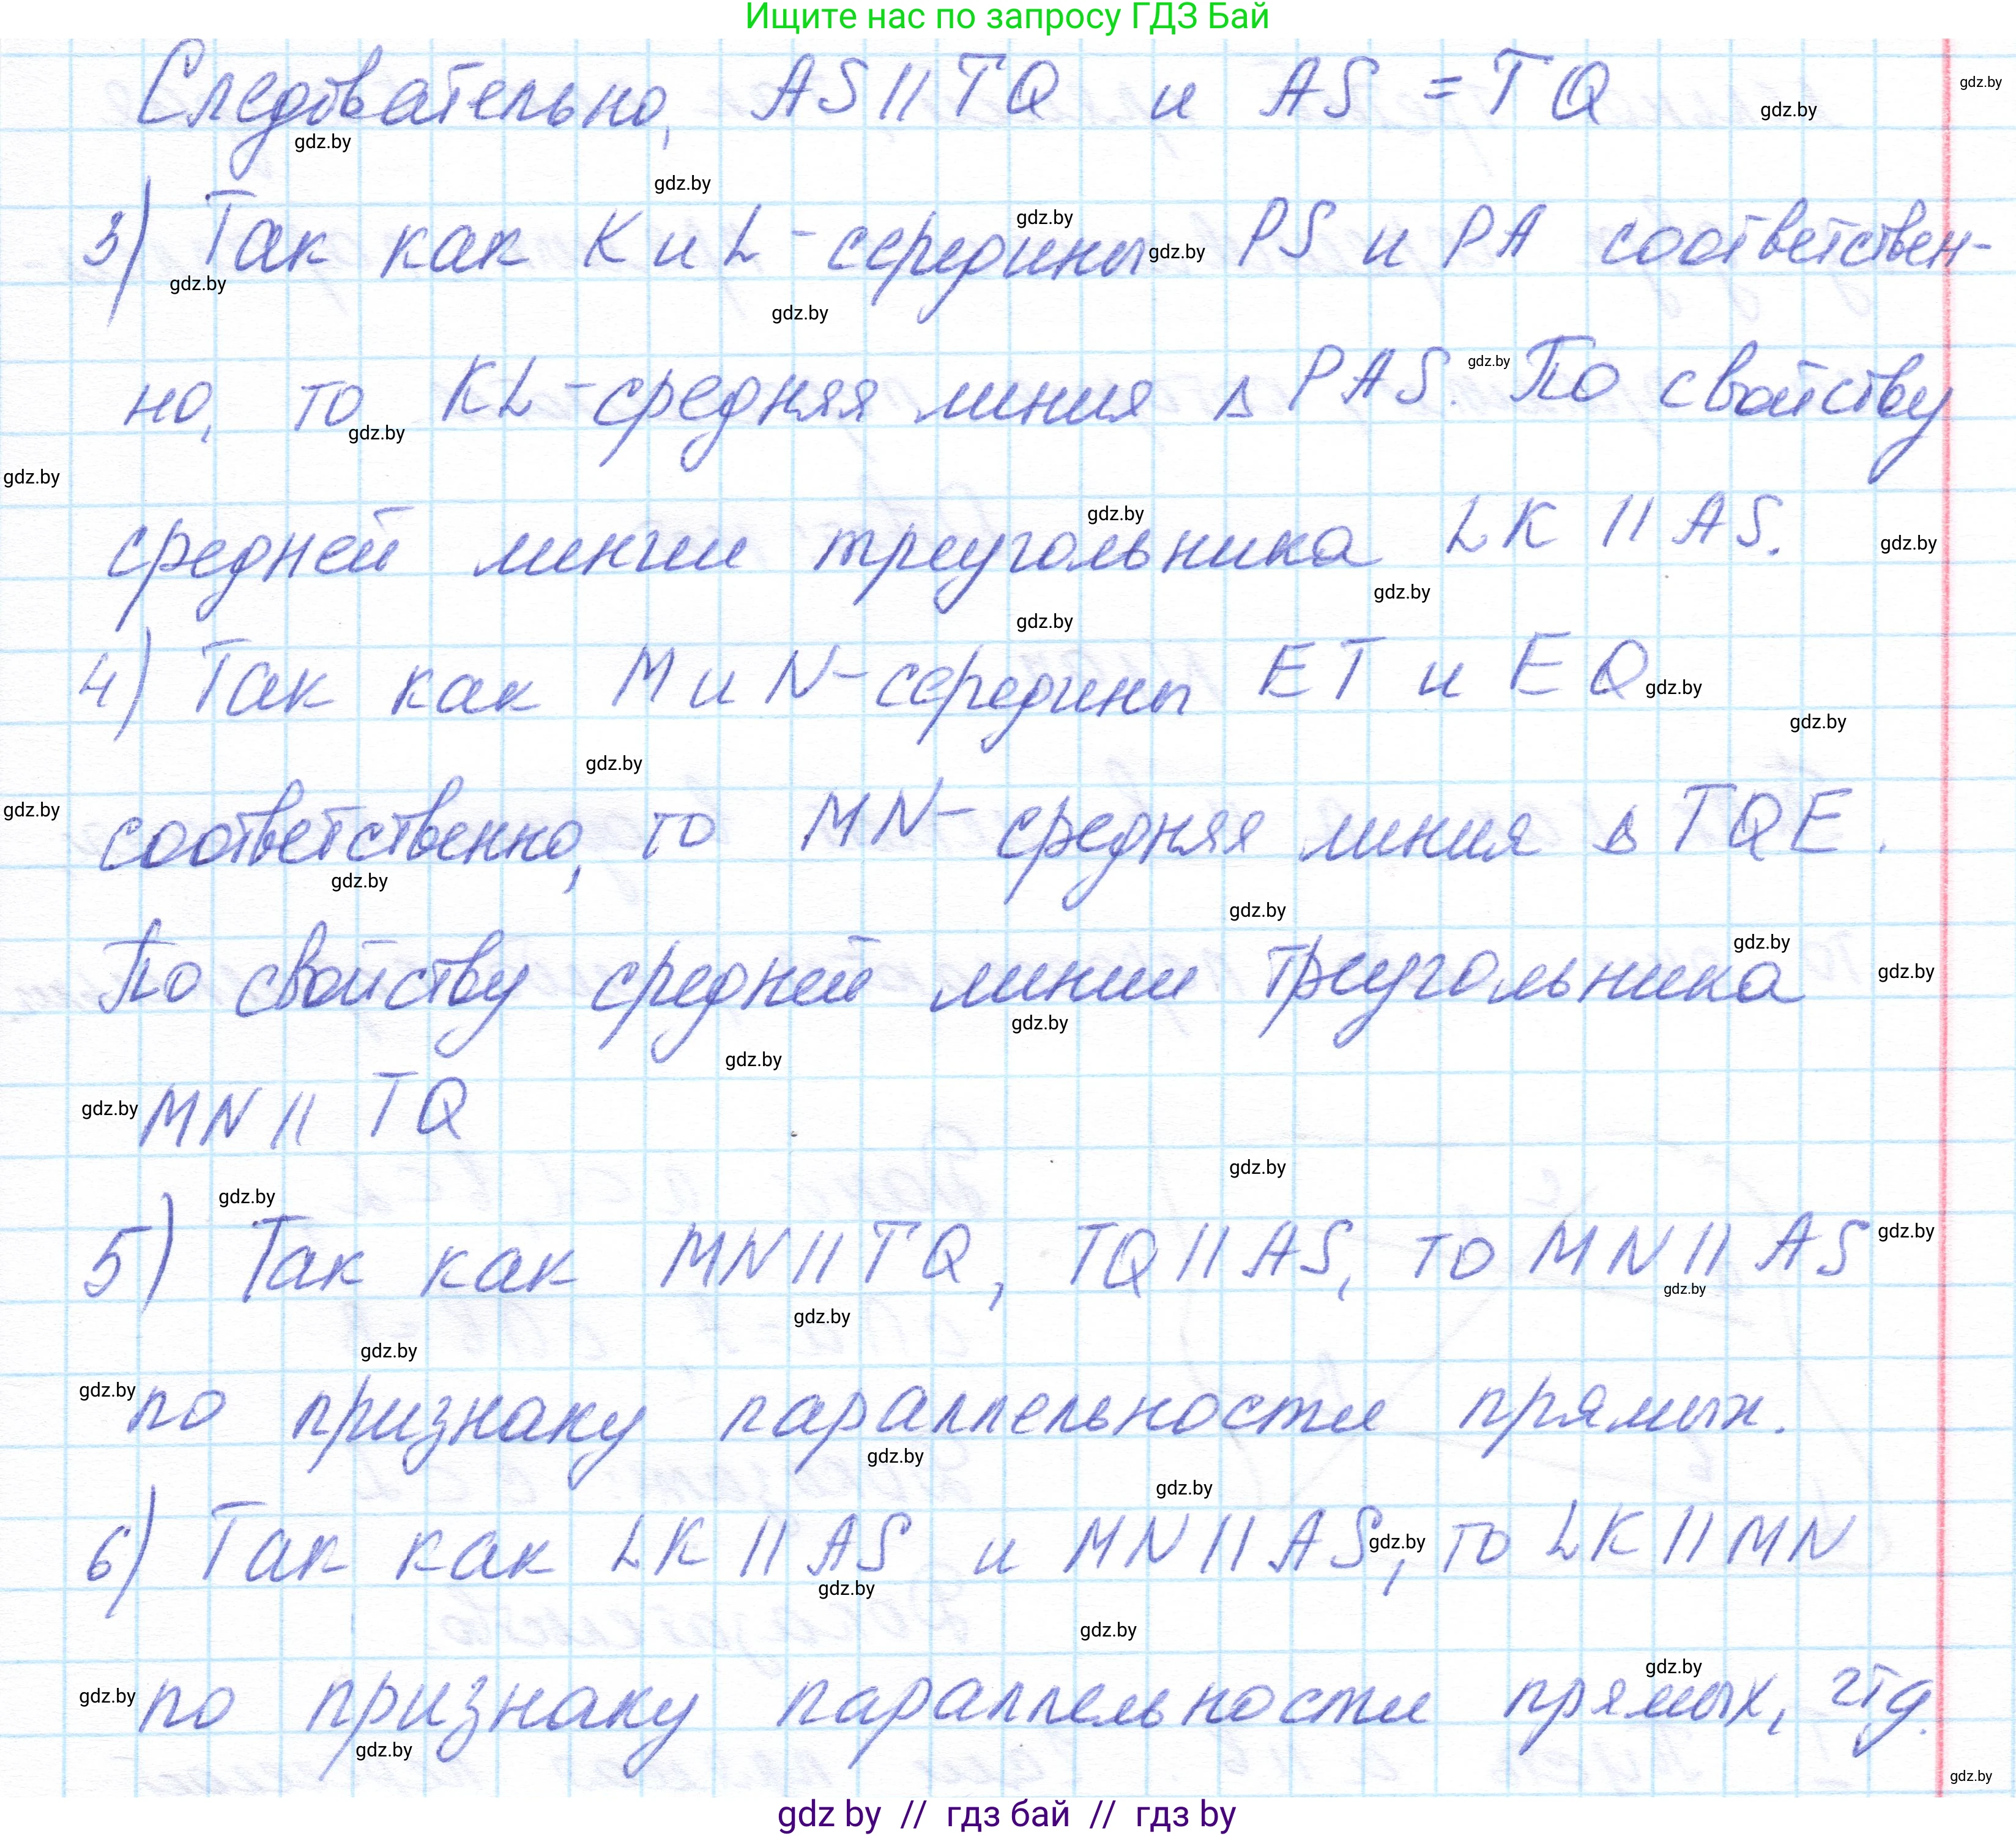 Ищите нас по запросу ГДЗ Бай
Следовательно, AS || TQ и AS = TQ
3) Так как K и L - середины PS и PA соответствен-
но, то KL - средняя линия в PAS. По свойству
средней линии треугольника LK || AS.
4) Так как M и N - середины ET и EQ
соответственно, то MN - средняя линия в TQE.
По свойству средней линии треугольника
MN || TQ
5) Так как MN || TQ, TQ || AS, то MN || AS
по признаку параллельности прямых.
6) Так как LK || AS и MN || AS, то LK || MN
по признаку параллельности прямых, чтд.
gdz by // гдз бай // гдз by